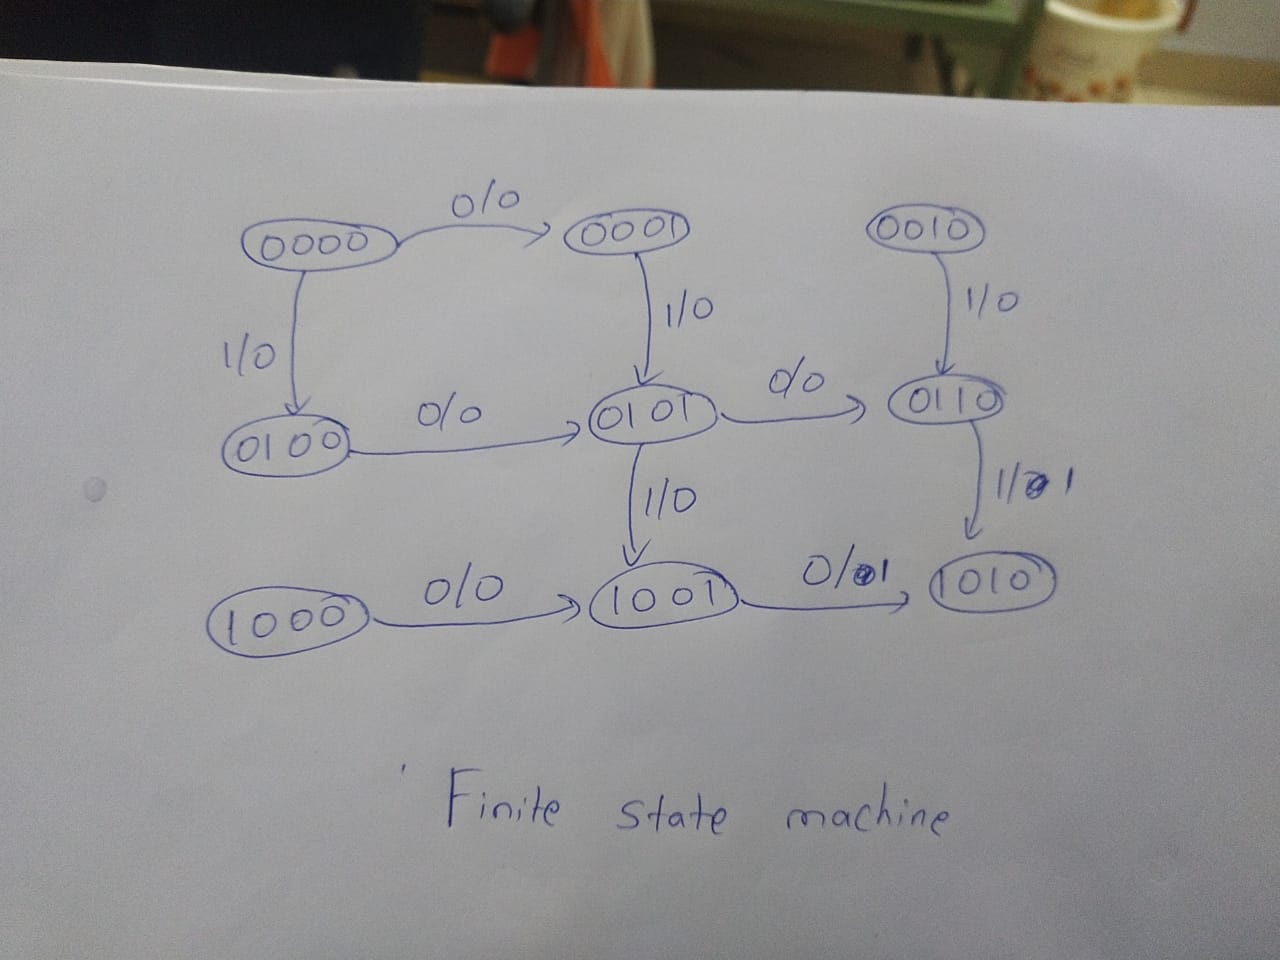 0/0
0000 0001 0010
1/0 1/0 1/0
0/0 0/0
0100 0101 0110
1/0 1/1
0/0 0/1
1000 1001 1010
Finite state machine